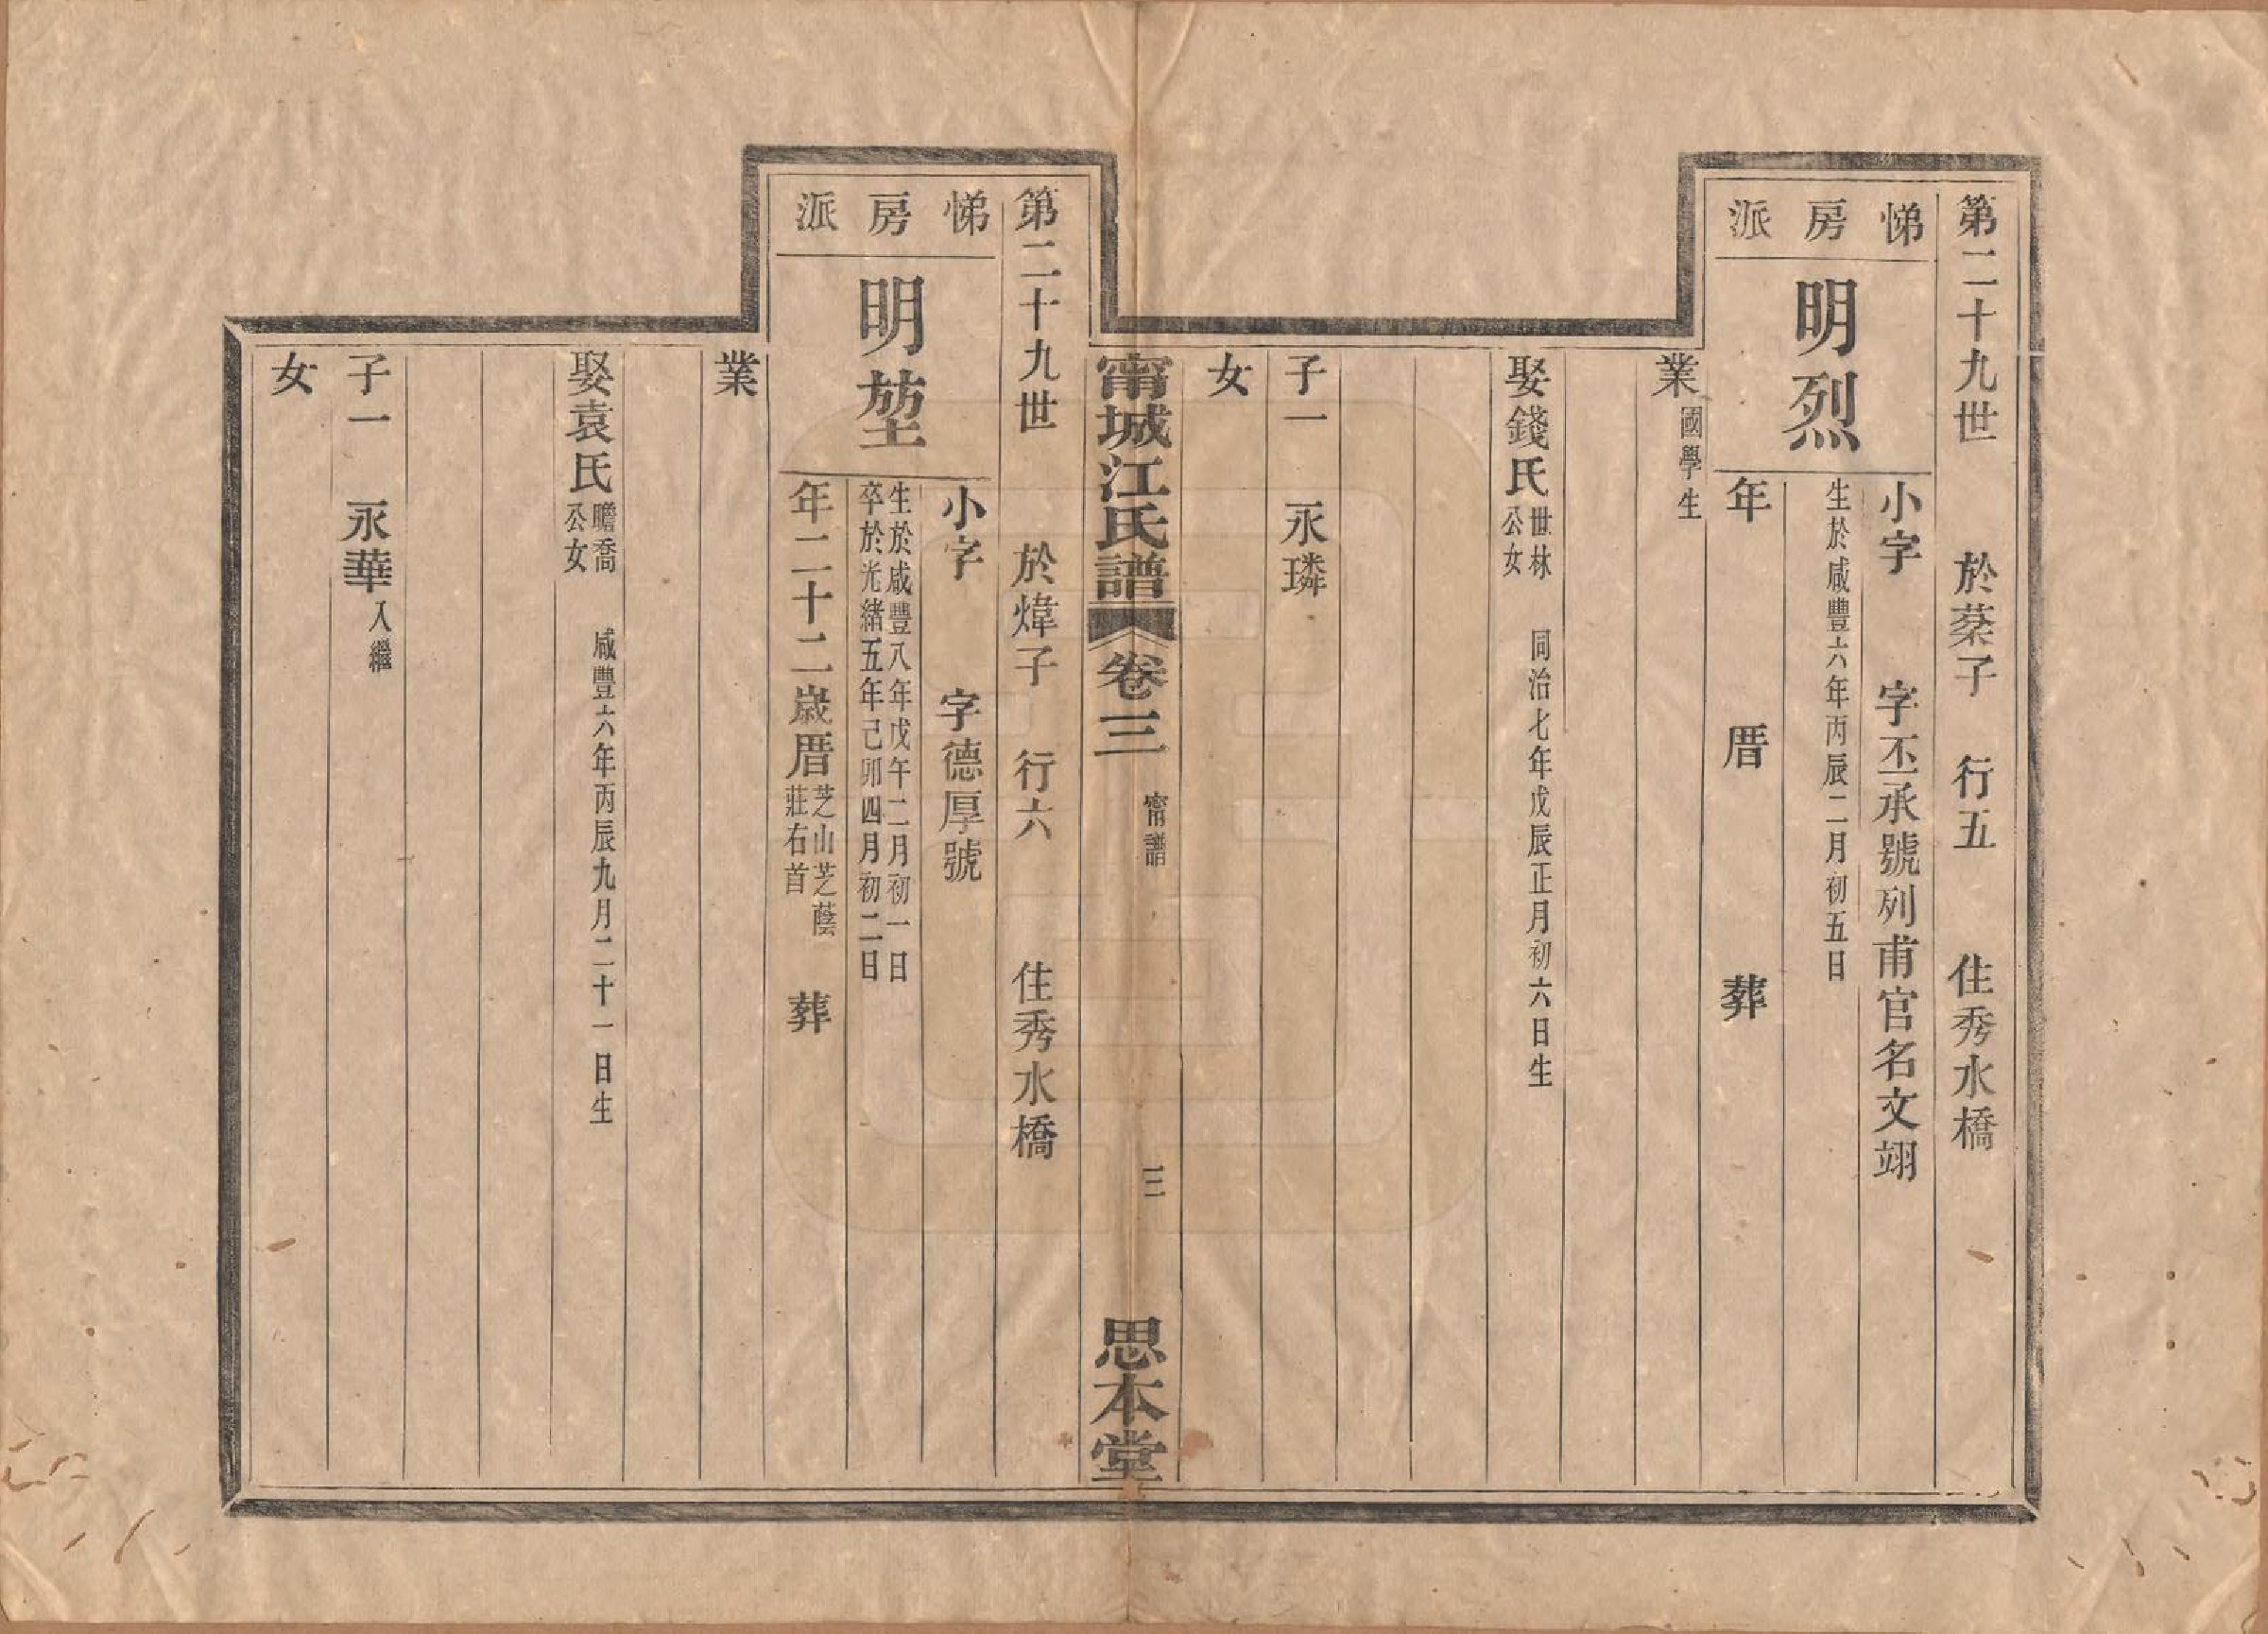 第二十九世　於蔾子　行五　住秀水橋
悌房派
明烈
小字　字丕承號列甫官名文翊
生於咸豐六年丙辰二月初五日
年　厝　葬
業國學生
娶錢氏世林公女　同治七年戊辰正月初六日生
子一　永璘
女
甯城江氏譜　卷三　甯譜　三　思本堂
第二十九世　於煒子　行六　住秀水橋
悌房派
明堃
小字　字德厚號
生於咸豐八年戊午二月初一日
卒於光緒五年己卯四月初二日
年二十二歲厝芝山芝蔭莊右首　葬
業
娶袁氏瞻喬公女　咸豐六年丙辰九月二十一日生
子一　永華入繼
女